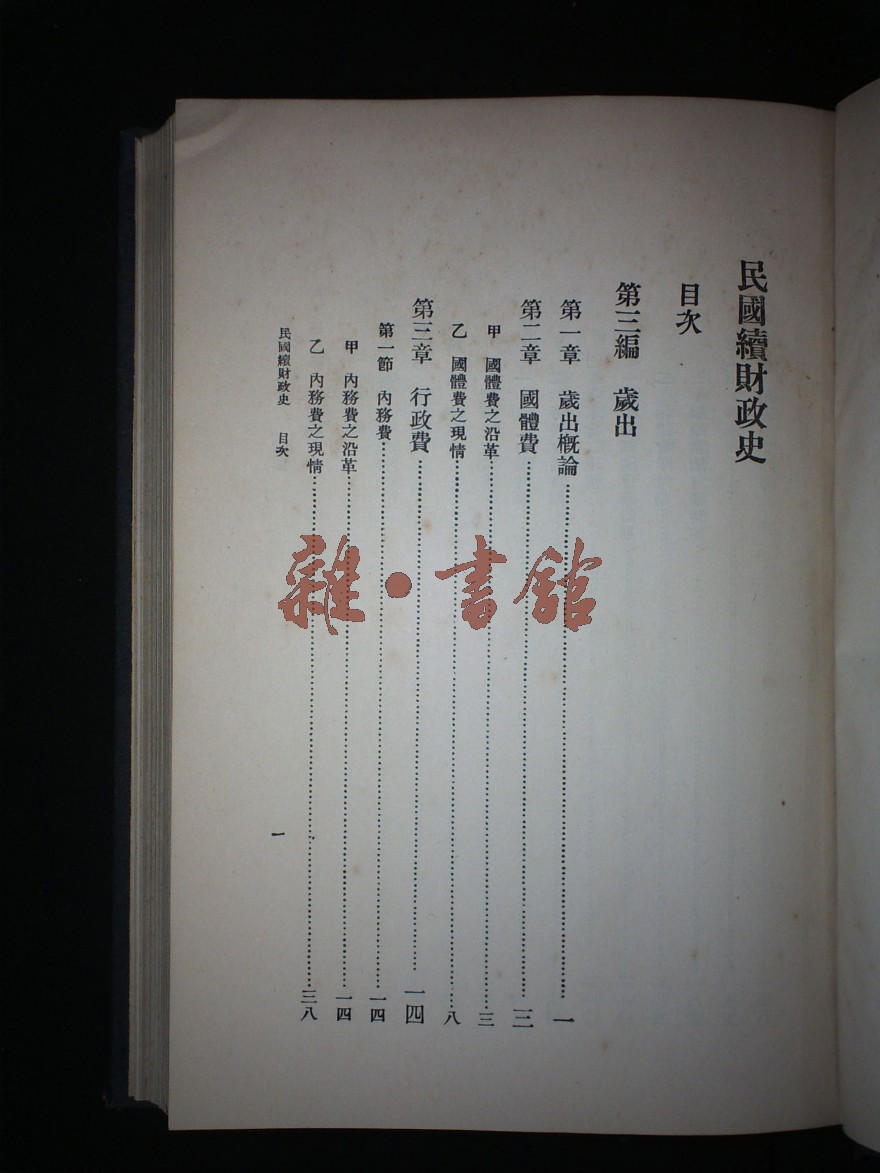 民國續財政史
目次
第三編 歲出
第一章 歲出概論……一
第二章 國體費……三
甲 國體費之沿革……三
乙 國體費之現情……八
第三章 行政費……一四
第一節 內務費……一四
甲 內務費之沿革……一四
乙 內務費之現情……三八
民國續財政史 目次
一
雜·書館